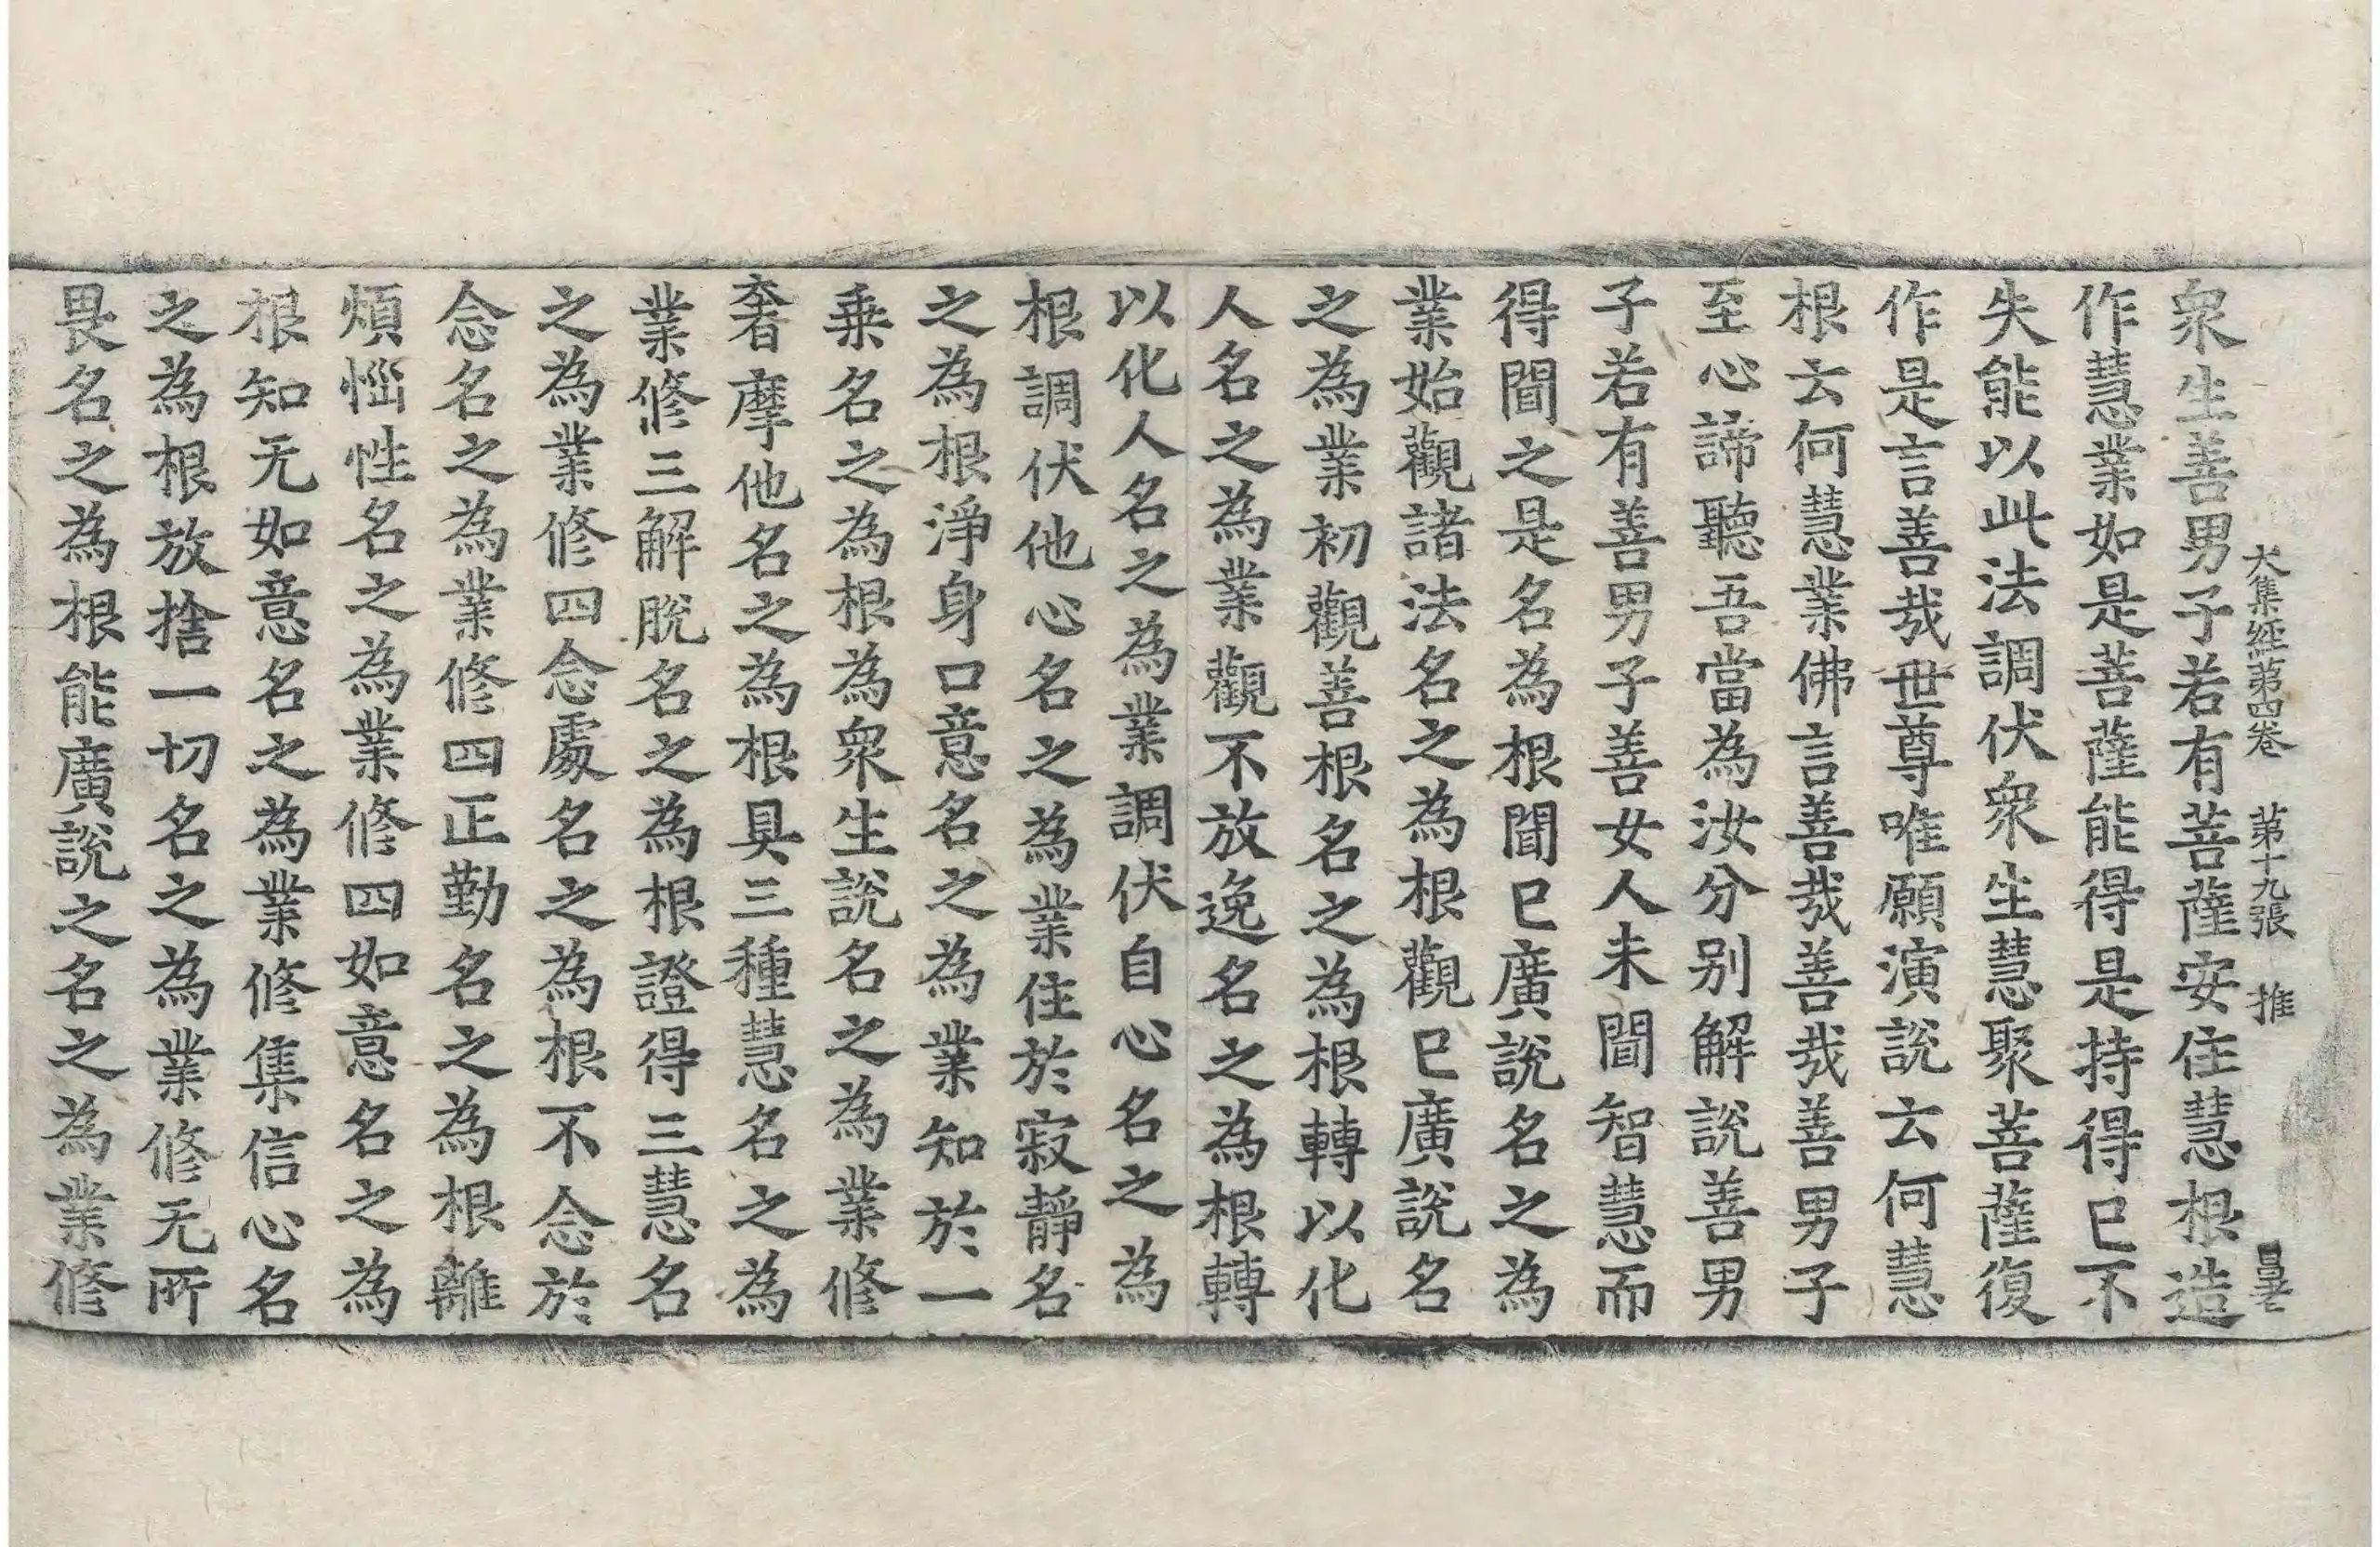 大集經第四卷 第十九張 推
衆生善男子若有菩薩安住慧根造
作慧業如是菩薩能得是持得已不
失能以此法調伏衆生慧聚菩薩復
作是言善哉世尊唯願演說云何慧
根云何慧業佛言善哉善哉善男子
至心諦聽吾當為汝分別解說善男
子若有善男子善女人未聞智慧而
得聞之是名為根聞已廣說名之為
業始觀諸法名之為根觀已廣說名
之為業初觀善根名之為根轉以化
人名之為業觀不放逸名之為根轉
以化人名之為業調伏自心名之為
根調伏他心名之為業住於寂靜名
之為根淨身口意名之為業知於一
乗名之為根為衆生說名之為業修
奢摩他名之為根具三種慧名之為
業修三解脫名之為根證得三慧名
之為業修四念處名之為根不念於
念名之為業修四正勤名之為根離
煩惱性名之為業修四如意名之為
根知无如意名之為業修集信心名
之為根放捨一切名之為業修无所
畏名之為根能廣說之名之為業修